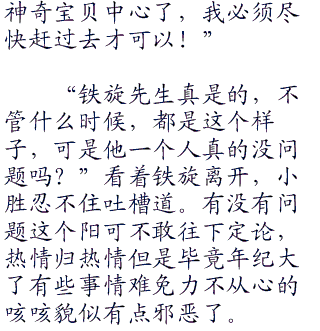 神奇宝贝中心了，我必须尽
快赶过去才可以！”
“铁旋先生真是的，不
管什么时候，都是这个样
子，可是他一个人真的没问
题吗？”看着铁旋离开，小
胜忍不住吐槽道。有没有问
题这个阳可不敢往下定论，
热情归热情但是毕竟年纪大
了有些事情难免力不从心的
咳咳貌似有点邪恶了。